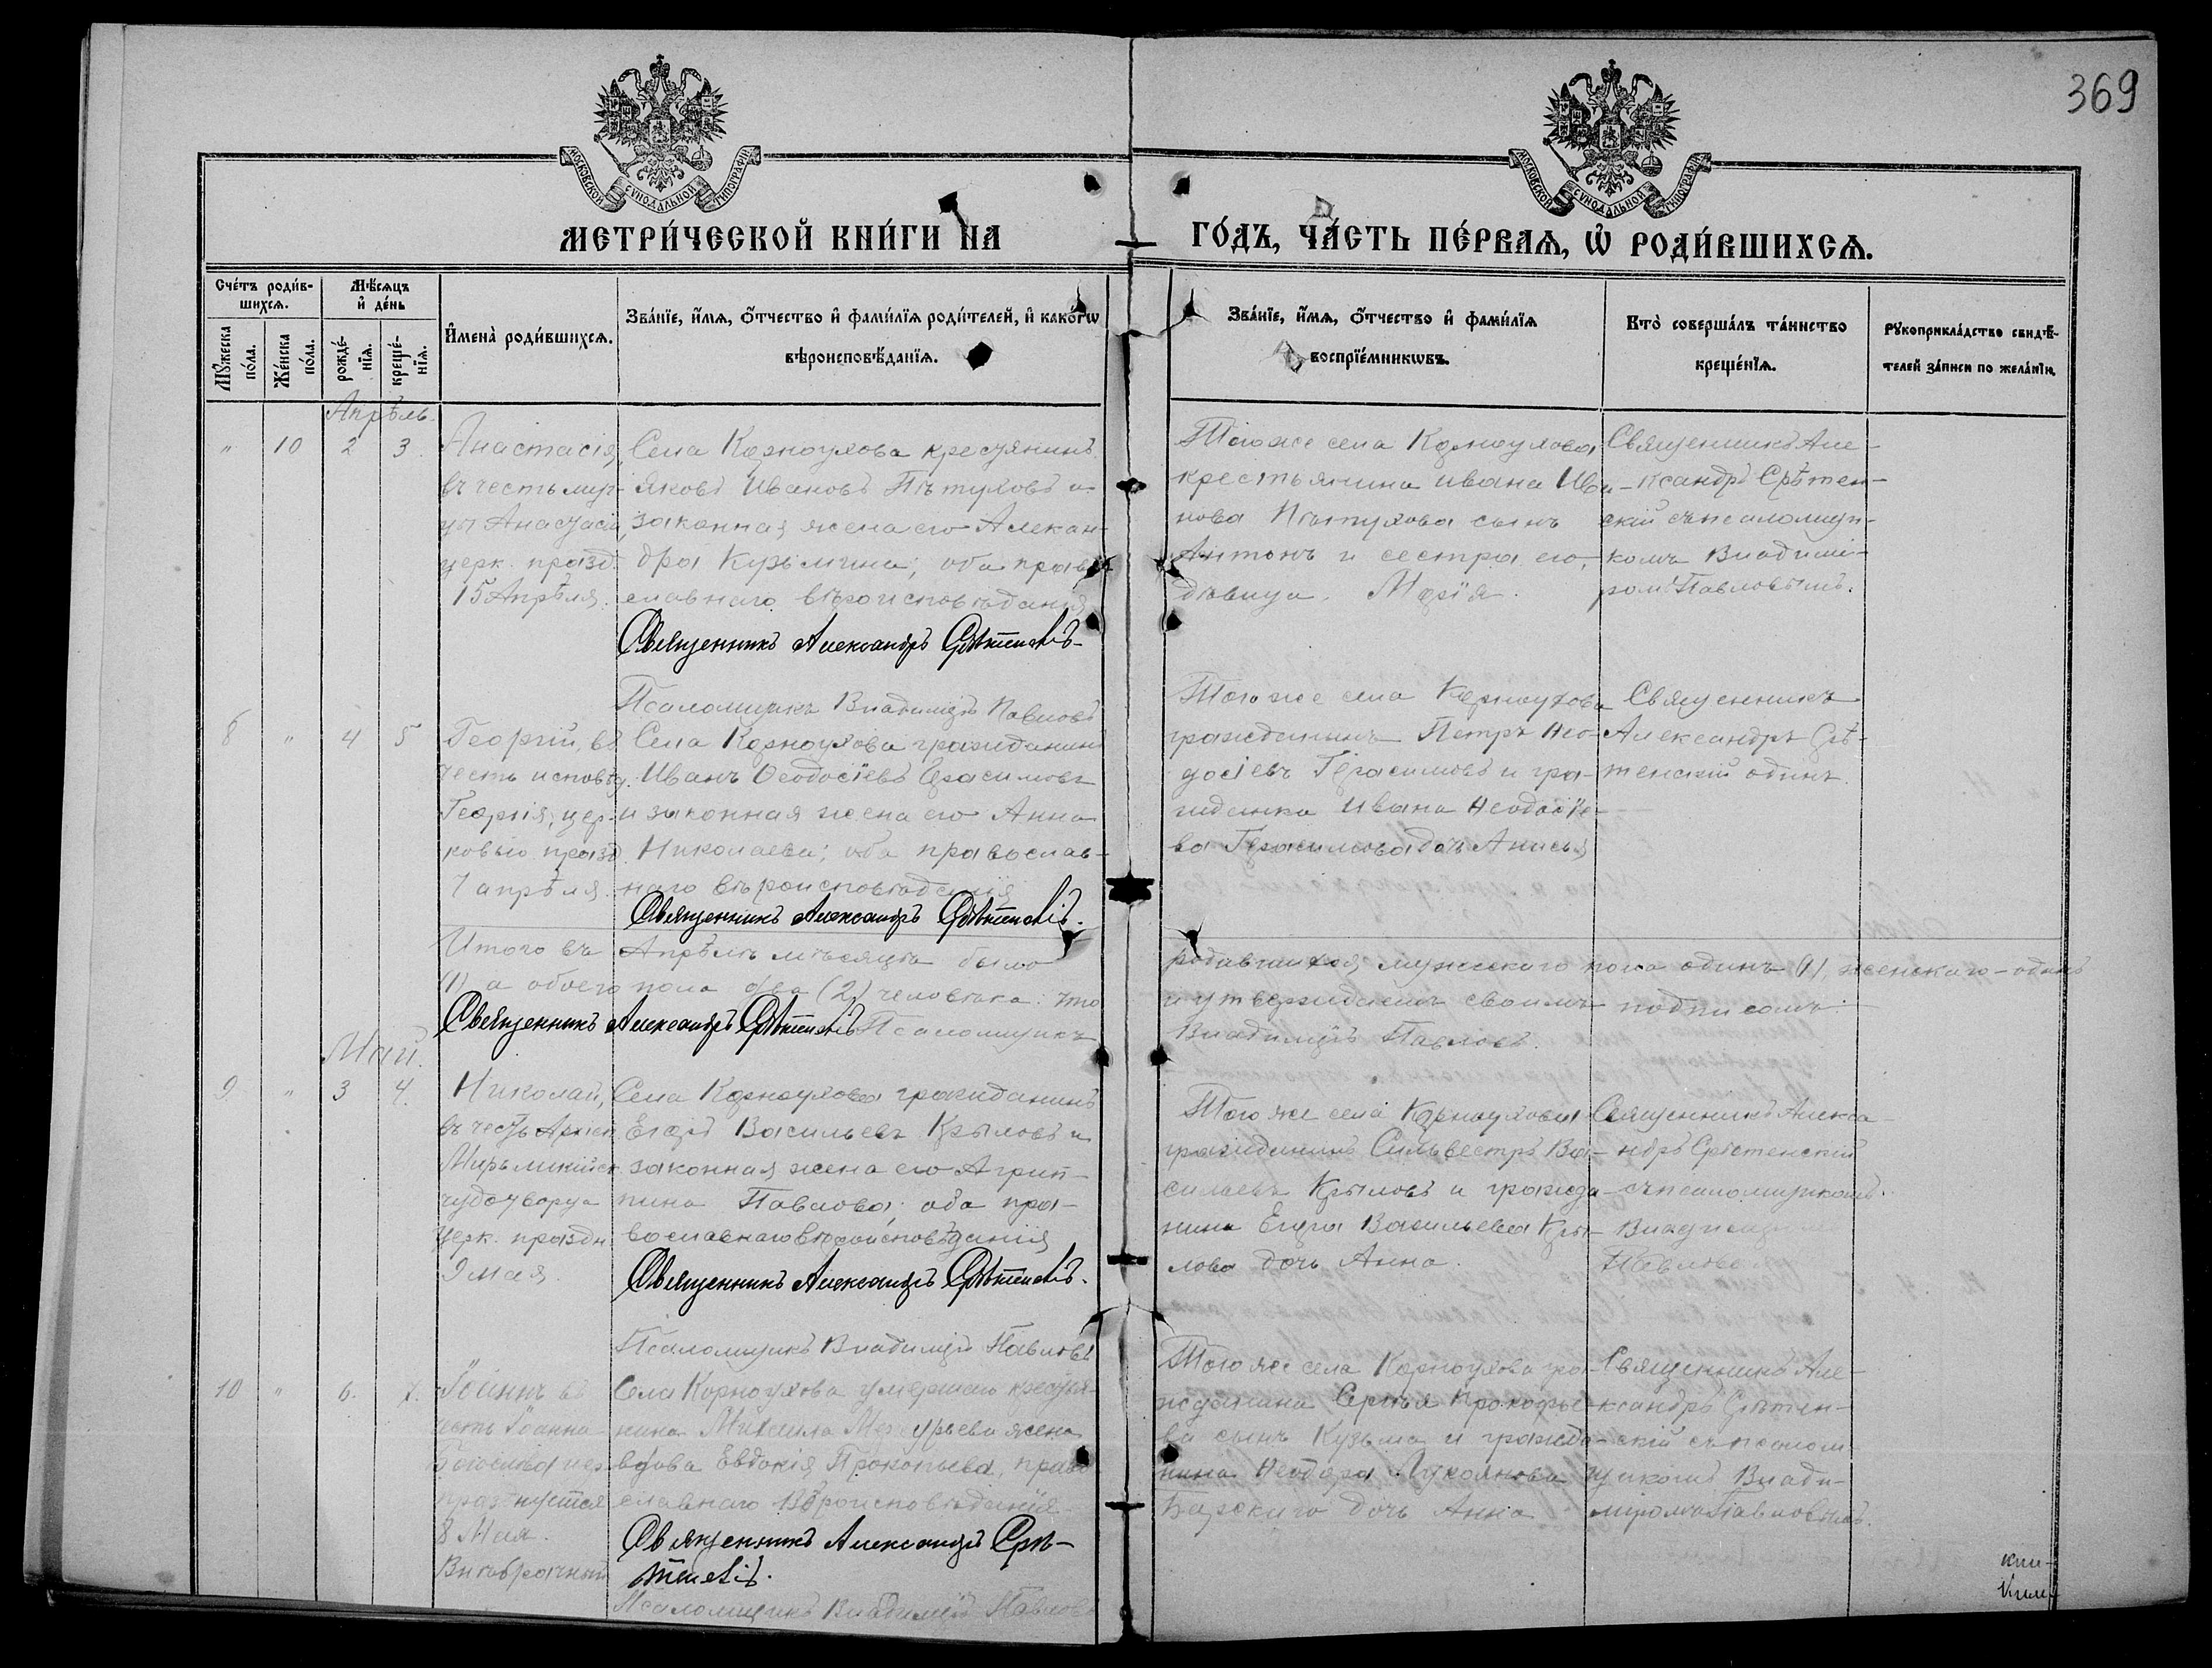 369
МОСКОВСКОЙ СУНОДАЛЬНОЙ ТИПОГРАФІИ
МОСКОВСКОЙ СУНОДАЛЬНОЙ ТИПОГРАФІИ
МЕТРИ́ЧЕСКОЙ КНИ́ГИ НА ГО́ДЪ, ЧА́СТЬ ПЕ́РВАѦ, Ѡ҆ РОДИ́ВШИХСѦ.
Сче́тъ роди́в-
шихсѧ.
Мꙋ́жеска
по́ла.
Же́нска
по́ла.
Мѣ́сѧцъ
и҆ де́нь
рожде́-
нїѧ.
креще́-
нїѧ.
И҆мена̀ роди́вшихсѧ.
Зва́нїе, и҆́мѧ, ѻ҆́тчество и҆ фами́лїѧ роди́телей, и҆ како́гѡ
вѣроисповѣ́данїѧ.
Зва́нїе, и҆́мѧ, ѻ҆́тчество и҆ фами́лїѧ
воспрїе́мникѡвъ.
Кто̀ соверша́лъ та́инство
креще́нїѧ.
Рꙋкоприкла́дство свидѣ́-
телей за́писи по жела́нїю.
Апрѣль.
" 10 2 3.
Анастасія,
въ честь муч-
цы Анастасіи,
церк. празд.
15 Апрѣля.
Села Корноухова крестьянинъ
Яковъ Ивановъ Пѣтуховъ и
законная жена его Алексан-
дра Кузьмина; оба право-
славнаго вѣроисповѣданія
Священникъ Александръ Срѣтенскій
Псаломщикъ Владиміръ Павловъ
Того же села Корноухова
крестьянина Ивана Ива-
нова Пѣтухова сынъ
Антонъ и сестра его,
дѣвица Марія.
Священникъ Але-
ксандръ Срѣтен-
скій съ псаломщи-
комъ Владимі-
ромъ Павловымъ.
8 " 4 5
Георгій, въ
честь исповѣд.
Георгія, цер-
ковью празд.
7 апрѣля.
Села Корноухова гражданинъ
Иванъ Ѳеодосіевъ Герасимовъ
и законная жена его Анна
Николаева; оба православ-
наго вѣроисповѣданія
Священникъ Александръ Срѣтенскій.
Того же села Корноухова
гражданинъ Петръ Ѳео-
досіевъ Герасимовъ и гра-
жданина Ивана Ѳеодосіе-
ва Герасимова дочь Анисья
Священникъ
Александръ Срѣ-
тенскій одинъ.
Итого въ Апрѣлѣ мѣсяцѣ было родившихся мужескаго пола одинъ (1), женскаго - одинъ
(1) а обоего пола два (2) человѣка: что и утверждаемъ своимъ подписомъ:
Священникъ Александръ Срѣтенскій Псаломщикъ Владиміръ Павловъ.
Май.
9 " 3 4.
Николай,
въ честь Архіеп.
Мирьликійск.
чудотворца
церк. праздн.
9 мая.
Села Корноухова гражданинъ
Егоръ Васильевъ Крыловъ и
законная жена его Агрип-
пина Павлова; оба пра-
вославнаго вѣроисповѣданія
Священникъ Александръ Срѣтенскій.
Псаломщикъ Владиміръ Павловъ
Того же села Корноухова
гражданинъ Сильвестръ Ва-
сильевъ Крыловъ и гражда-
нина Егора Васильева Кры-
лова дочь Анна.
Священникъ Алекса-
ндръ Срѣтенскій
съ псаломщикомъ
Владиміромъ
Павловымъ
10 " 6. 7.
Іоаннъ въ
честь Іоанна
Богослова
празднуется
8 Мая.
Внѣбрачный
Села Корноухова умершаго крестья-
нина Михаила Меркурьева жена
вдова Евдокія Прокопьева, право-
славнаго вѣроисповѣданія
Священникъ Александръ Срѣ-
тенскій.
Псаломщикъ Владиміръ Павловъ
Того же села Корноухова гра-
жданина Сергѣя Прокофье-
ва сынъ Кузьма и гражда-
нина Ѳеодора Лукоянова
дочь Анна
Священникъ Але-
ксандръ Срѣтен-
скій съ псалом-
щикомъ Влади-
міромъ Павловымъ.